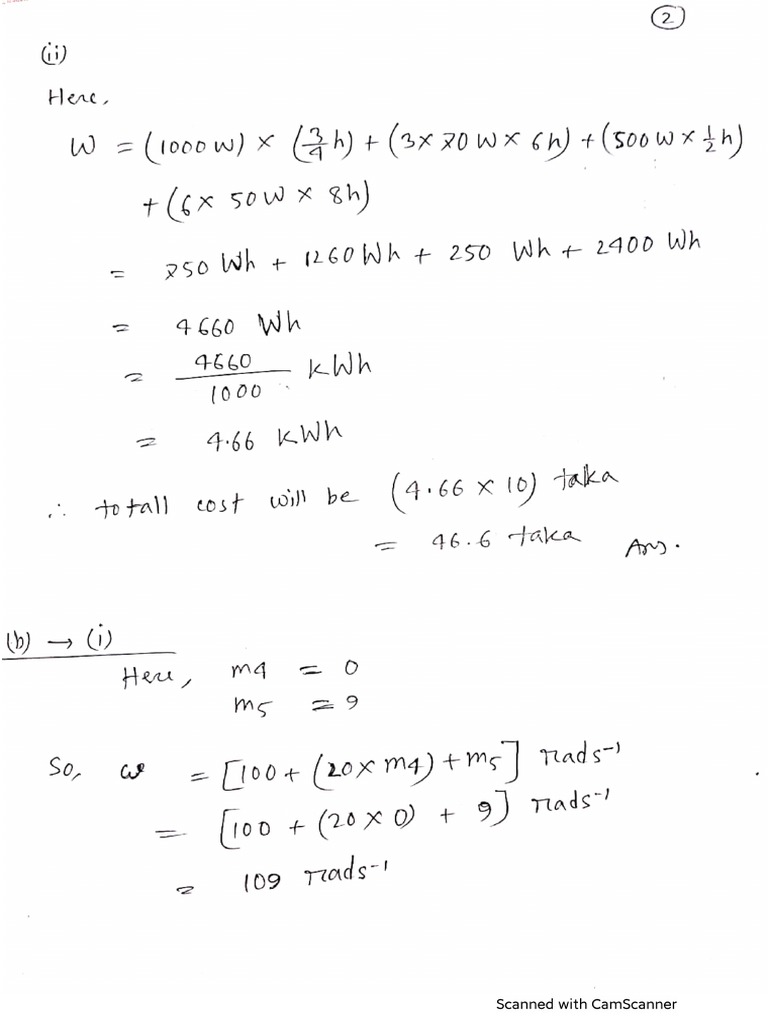 (2)
(ii)
Here,
W = (1000 W) × (3/4 h) + (3 × 70 W × 6h) + (500 W × 1/2 h)
+ (6 × 50W × 8h)
= 750 Wh + 1260 Wh + 250 Wh + 2400 Wh
= 4660 Wh
= 4660/1000 kWh
= 4.66 kWh
∴ totall cost will be (4.66 × 10) taka
= 46.6 taka Ans.
(b) → (i)
Here, m4 = 0
m5 = 9
So, ω = [100 + (20 × m4) + m5] rads⁻¹
= [100 + (20 × 0) + 9] rads⁻¹
= 109 rads⁻¹
Scanned with CamScanner